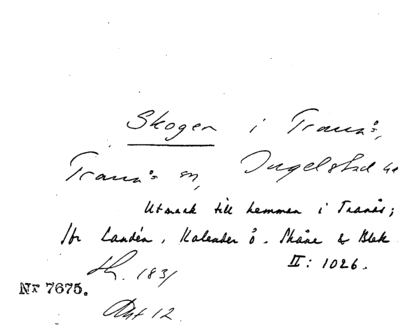 Skogen i Tranås,
Tranås sn, Ingelstad hd
Utmark till hemman i Tranås;
jfr Landén, Kalender ö. Skåne & Blek.
II: 1026.
1831
Nr 7675.
12